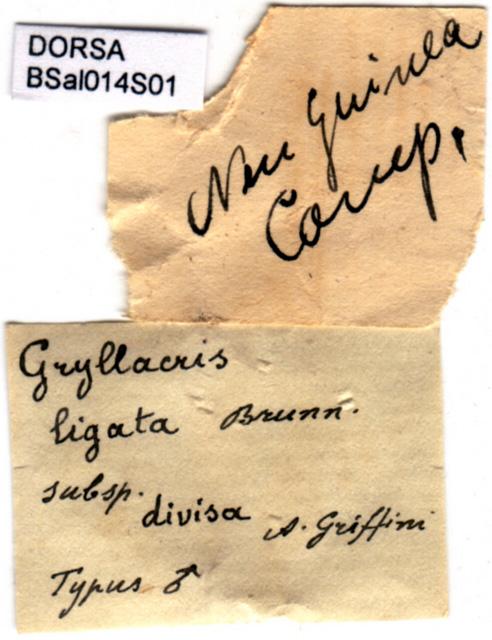 DORSA
BSal014S01
Neu Guinea
Comp.
Gryllacris
ligata Brunn.
subsp.
divisa A. Griffini
Typus ♂